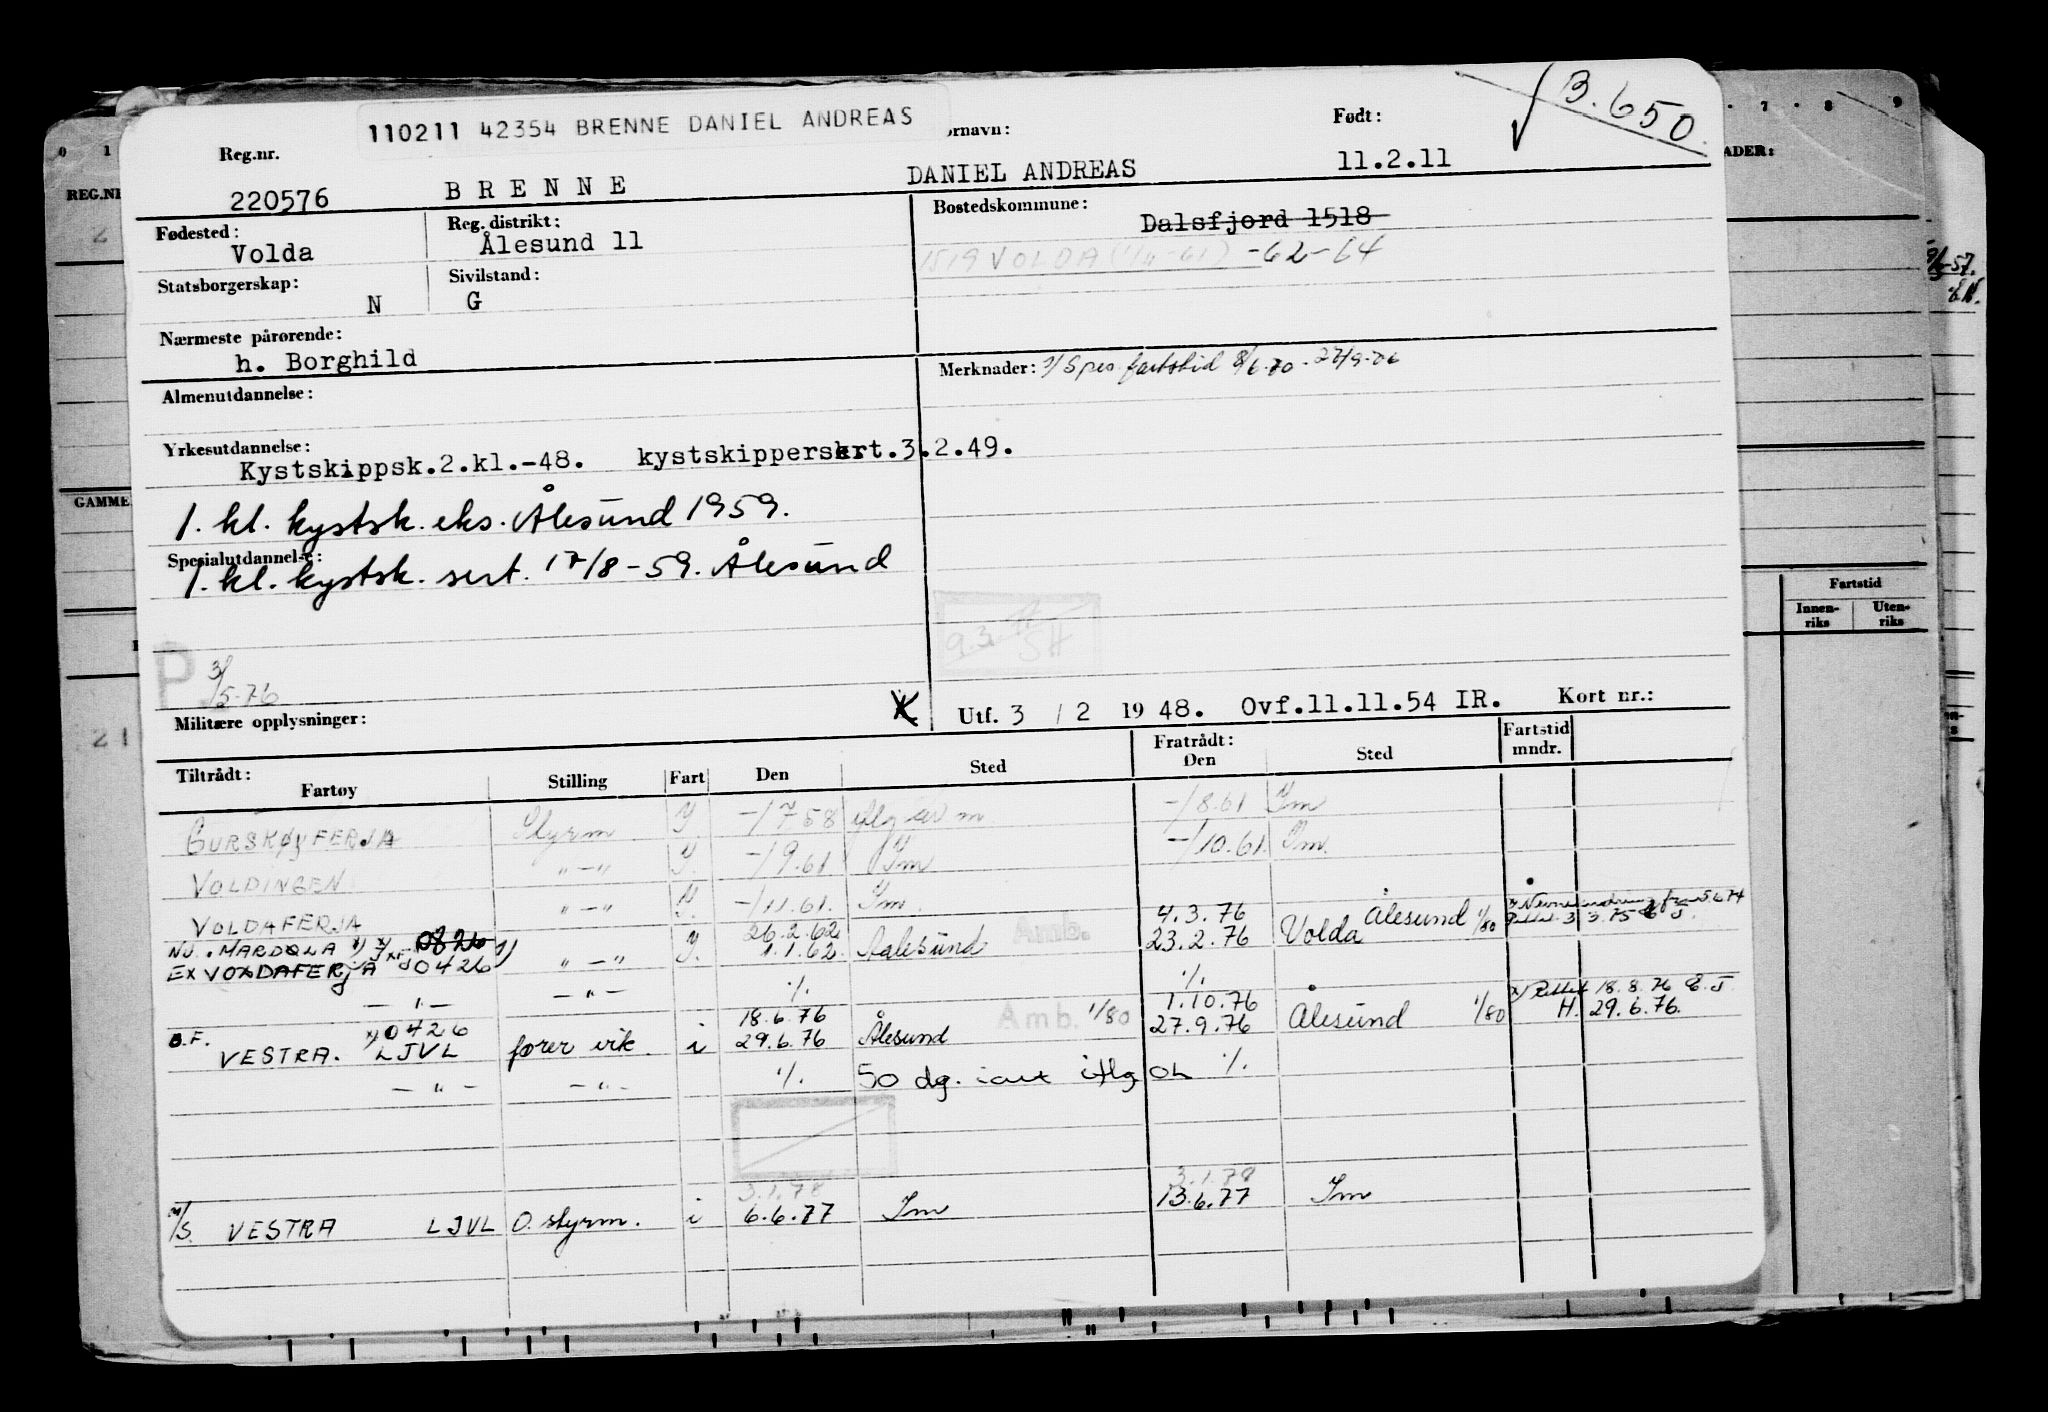 3.650.
110211 42354 BRENNE DANIEL ANDREAS
Reg.nr. ornavn: Født:
220576 B R E N N E DANIEL ANDREAS 11.2.11
Fødested: Reg. distrikt: Bostedskommune:
Volda Ålesund 11 Dalsfjord 1518
1519 VOLDA (1/4-61) -62-64
Statsborgerskap: Sivilstand:
N G
Nærmeste pårørende:
h. Borghild
Merknader: 1/ Spes. fartstid 8/6.70 -
Almenutdannelse:
Yrkesutdannelse:
Kystskippsk.2.kl.-48. kystskippersert.3.2.49.
1. kl. kystsk. eks. Ålesund 1959.
Spesialutdannelse:
1. kl. kystsk. sert. 17/8-59. Ålesund
9.3. SH
P 3/5-76
Militære opplysninger: Utf. 3 / 2 19 48. Ovf.11.11.54 IR. Kort nr.:
Tiltrådt: Fratrådt: Fartstid mndr.
Fartøy Stilling Fart Den Sted Den Sted
GURSKØYFERJA Styrm -/7 58 iflg av m -/8.61
VOLDINGEN "-" -/9.61 -/10.61
VOLDAFERJA "-" -/11.61.
26.2.62 Amb. 4.3.76 Ålesund 1/80
NU. MARDØLA 0826
EX VOLDAFERJA J 0426 "-" 1.1.62. Aalesund 23.2.76 Volda
- " - - " - ./. ./.
18.6.76 Amb. 1/80 1.10.76 x) Rettet 18.8.76 E.J.
B.F. VESTRA. 0426 LJVL fører vik. i 29.6.76 Ålesund 27.9.76 Ålesund 1/80 H. 29.6.76.
- " - - " - ./. 50 dg. ./.
3.1.78 3.1.78
M/S. VESTRA LJVL O. styrm. i 6.6.77 13.6.77
0 1 7 8 9
REG.NR
ADER:
GAMME
Fartstid
Innen-riks Uten-riks